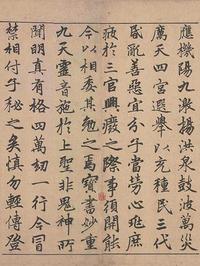 應機陽九激揚洪泉鼓波萬災
厲天四宮選舉以充種民三代
亂善惡宜分子當勞心
疲於三官興廢之際事須開能
今以相委其勉之焉寶書妙重
九天靈音施於上聖非鬼神所
聞明真有格四萬劫一行今冒
禁相付子秘之矣慎勿輕傳澄